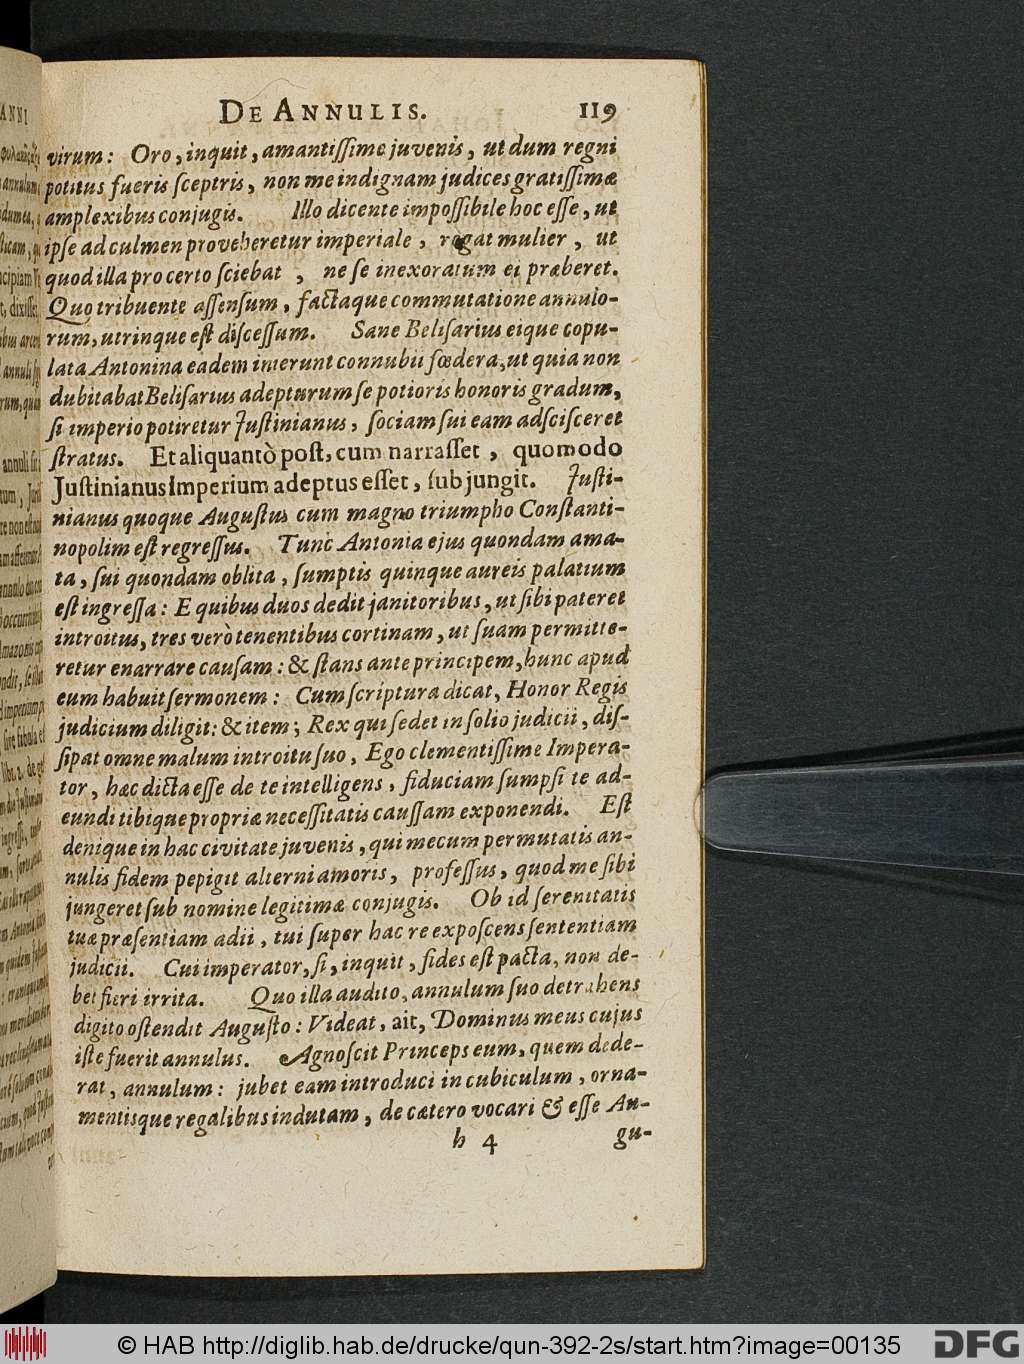 DE ANNULIS. 119
virum: Oro, inquit, amantissime juvenis, ut dum regni
potitus fueris sceptris, non me indignam judices gratissimæ
amplexibus conjugis. Illo dicente impossibile hoc esse, ut
ipse ad culmen proveheretur imperiale, rogat mulier, ut
quod illa pro certo sciebat, ne se inexoratum ei præberet.
Quo tribuente assensum, factaque commutatione annulo-
rum, utrinque est discessum. Sane Belisarius eique copu-
lata Antonina eadem inierunt connubii fœdera, ut quia non
dubitabat Belisarius adepturum se potioris honoris gradum,
si imperio potiretur Justinianus, sociam sui eam adscisceret
stratus. Et aliquantò post, cum narrasset, quomodo
Justinianus Imperium adeptus esset, subjungit. Justi-
nianus quoque Augustus cum magno triumpho Constanti-
nopolim est regressus. Tunc Antonia ejus quondam ama-
ta, sui quondam oblita, sumptis quinque aureis palatium
est ingressa: E quibus duos dedit janitoribus, ut sibi pateret
introitus, tres verò tenentibus cortinam, ut suam permitte-
retur enarrare causam: & stans ante principem, hunc apud
eum habuit sermonem: Cum scriptura dicat, Honor Regis
judicium diligit: & item; Rex qui sedet in solio judicii, dis-
sipat omne malum introitu suo, Ego clementissime Impera-
tor, hæc dicta esse de te intelligens, fiduciam sumpsi te ad-
eundi tibique propriæ necessitatis caussam exponendi. Est
denique in hac civitate juvenis, qui mecum permutatis an-
nulis fidem pepigit alterni amoris, professus, quod me sibi
jungeret sub nomine legitimæ conjugis. Ob id serenitatis
tuæ præsentiam adii, tui super hac re exposcens sententiam
judicii. Cui imperator, si, inquit, fides est pacta, non de-
bet fieri irrita. Quo illa audito, annulum suo detrahens
digito ostendit Augusto: Videat, ait, Dominus meus cujus
iste fuerit annulus. Agnoscit Princeps eum, quem dede-
rat, annulum: jubet eam introduci in cubiculum, orna-
mentisque regalibus indutam, de cætero vocari & esse Au-
h 4 gu-
© HAB http://diglib.hab.de/drucke/qun-392-2s/start.htm?image=00135
DFG